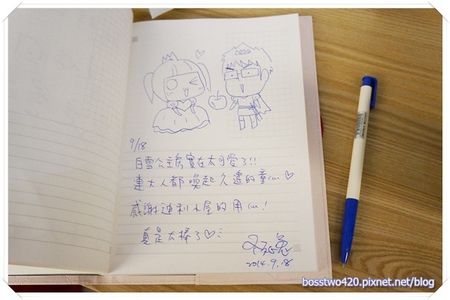 9/18
白雪公主房實在太可愛了!!
連大人都喚起久違的童心♡
感謝達利小屋的用心!
真是太棒了♡
2014.9.18
bosstwo420.pixnet.net/blog